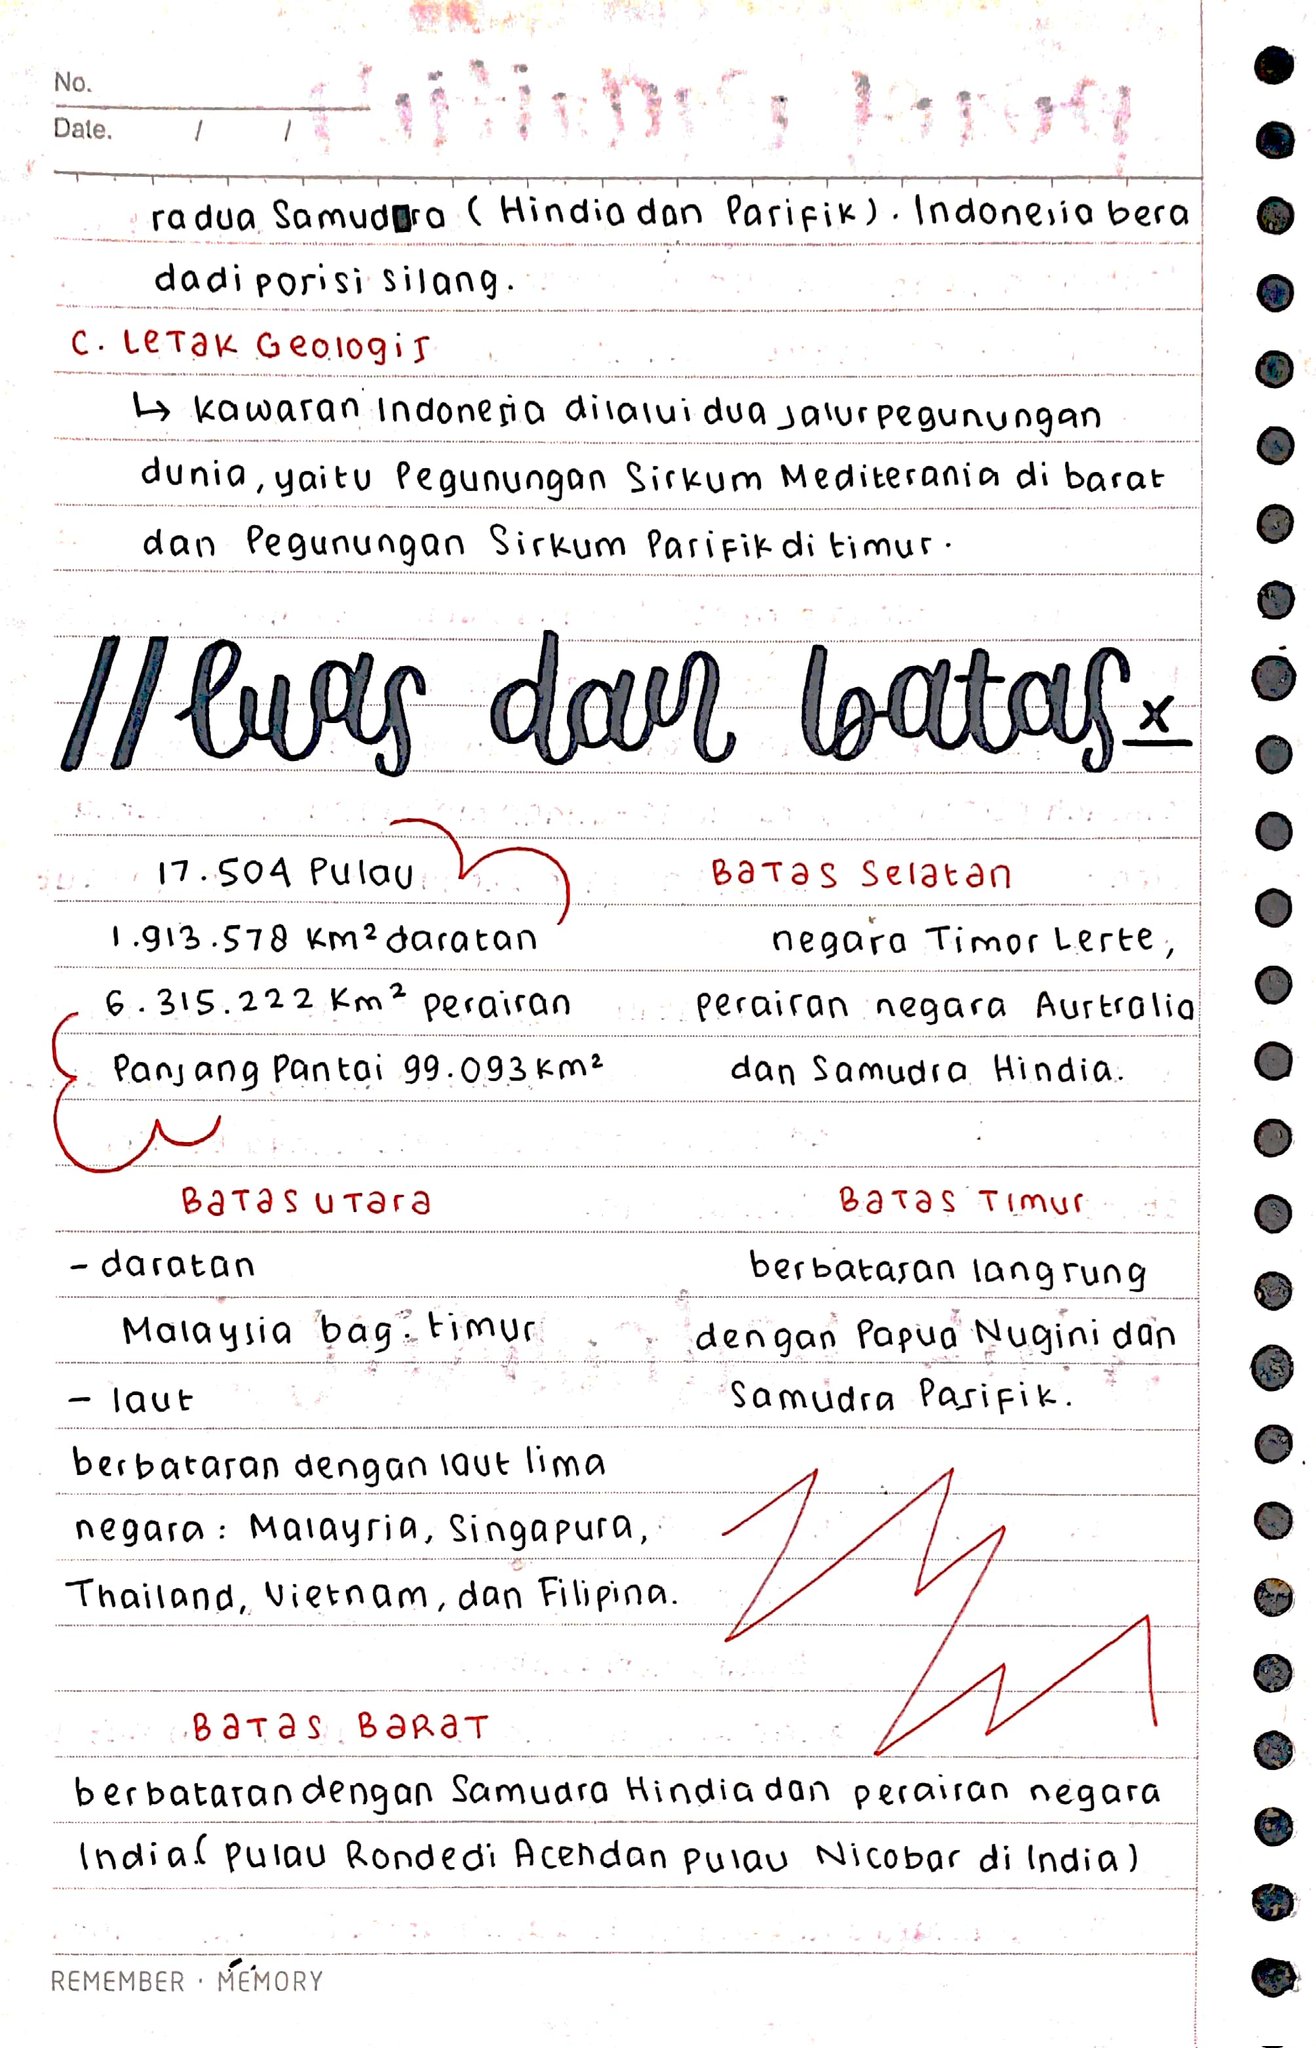 No.
Date. / /
radua Samudra (Hindia dan Pasifik). Indonesia bera
dadi posisi silang.
C. Letak Geologis
↳ kawasan Indonesia dilalui dua jalur pegunungan
dunia, yaitu Pegunungan Sirkum Mediterania di barat
dan Pegunungan Sirkum Pasifik di timur.
//luas dan batas x
17.504 Pulau
1.913.578 Km² daratan
6.315.222 Km² perairan
Panjang Pantai 99.093 Km²
Batas Selatan
negara Timor Leste,
perairan negara Australia
dan Samudra Hindia.
Batas Utara
- daratan
Malaysia bag. timur
- laut
berbatasan dengan laut lima
negara: Malaysia, Singapura,
Thailand, Vietnam, dan Filipina.
Batas Timur
berbatasan langsung
dengan Papua Nugini dan
Samudra Pasifik.
Batas Barat
berbatasan dengan Samudra Hindia dan perairan negara
India (pulau Ronde di Aceh dan pulau Nicobar di India)
REMEMBER · MEMORY